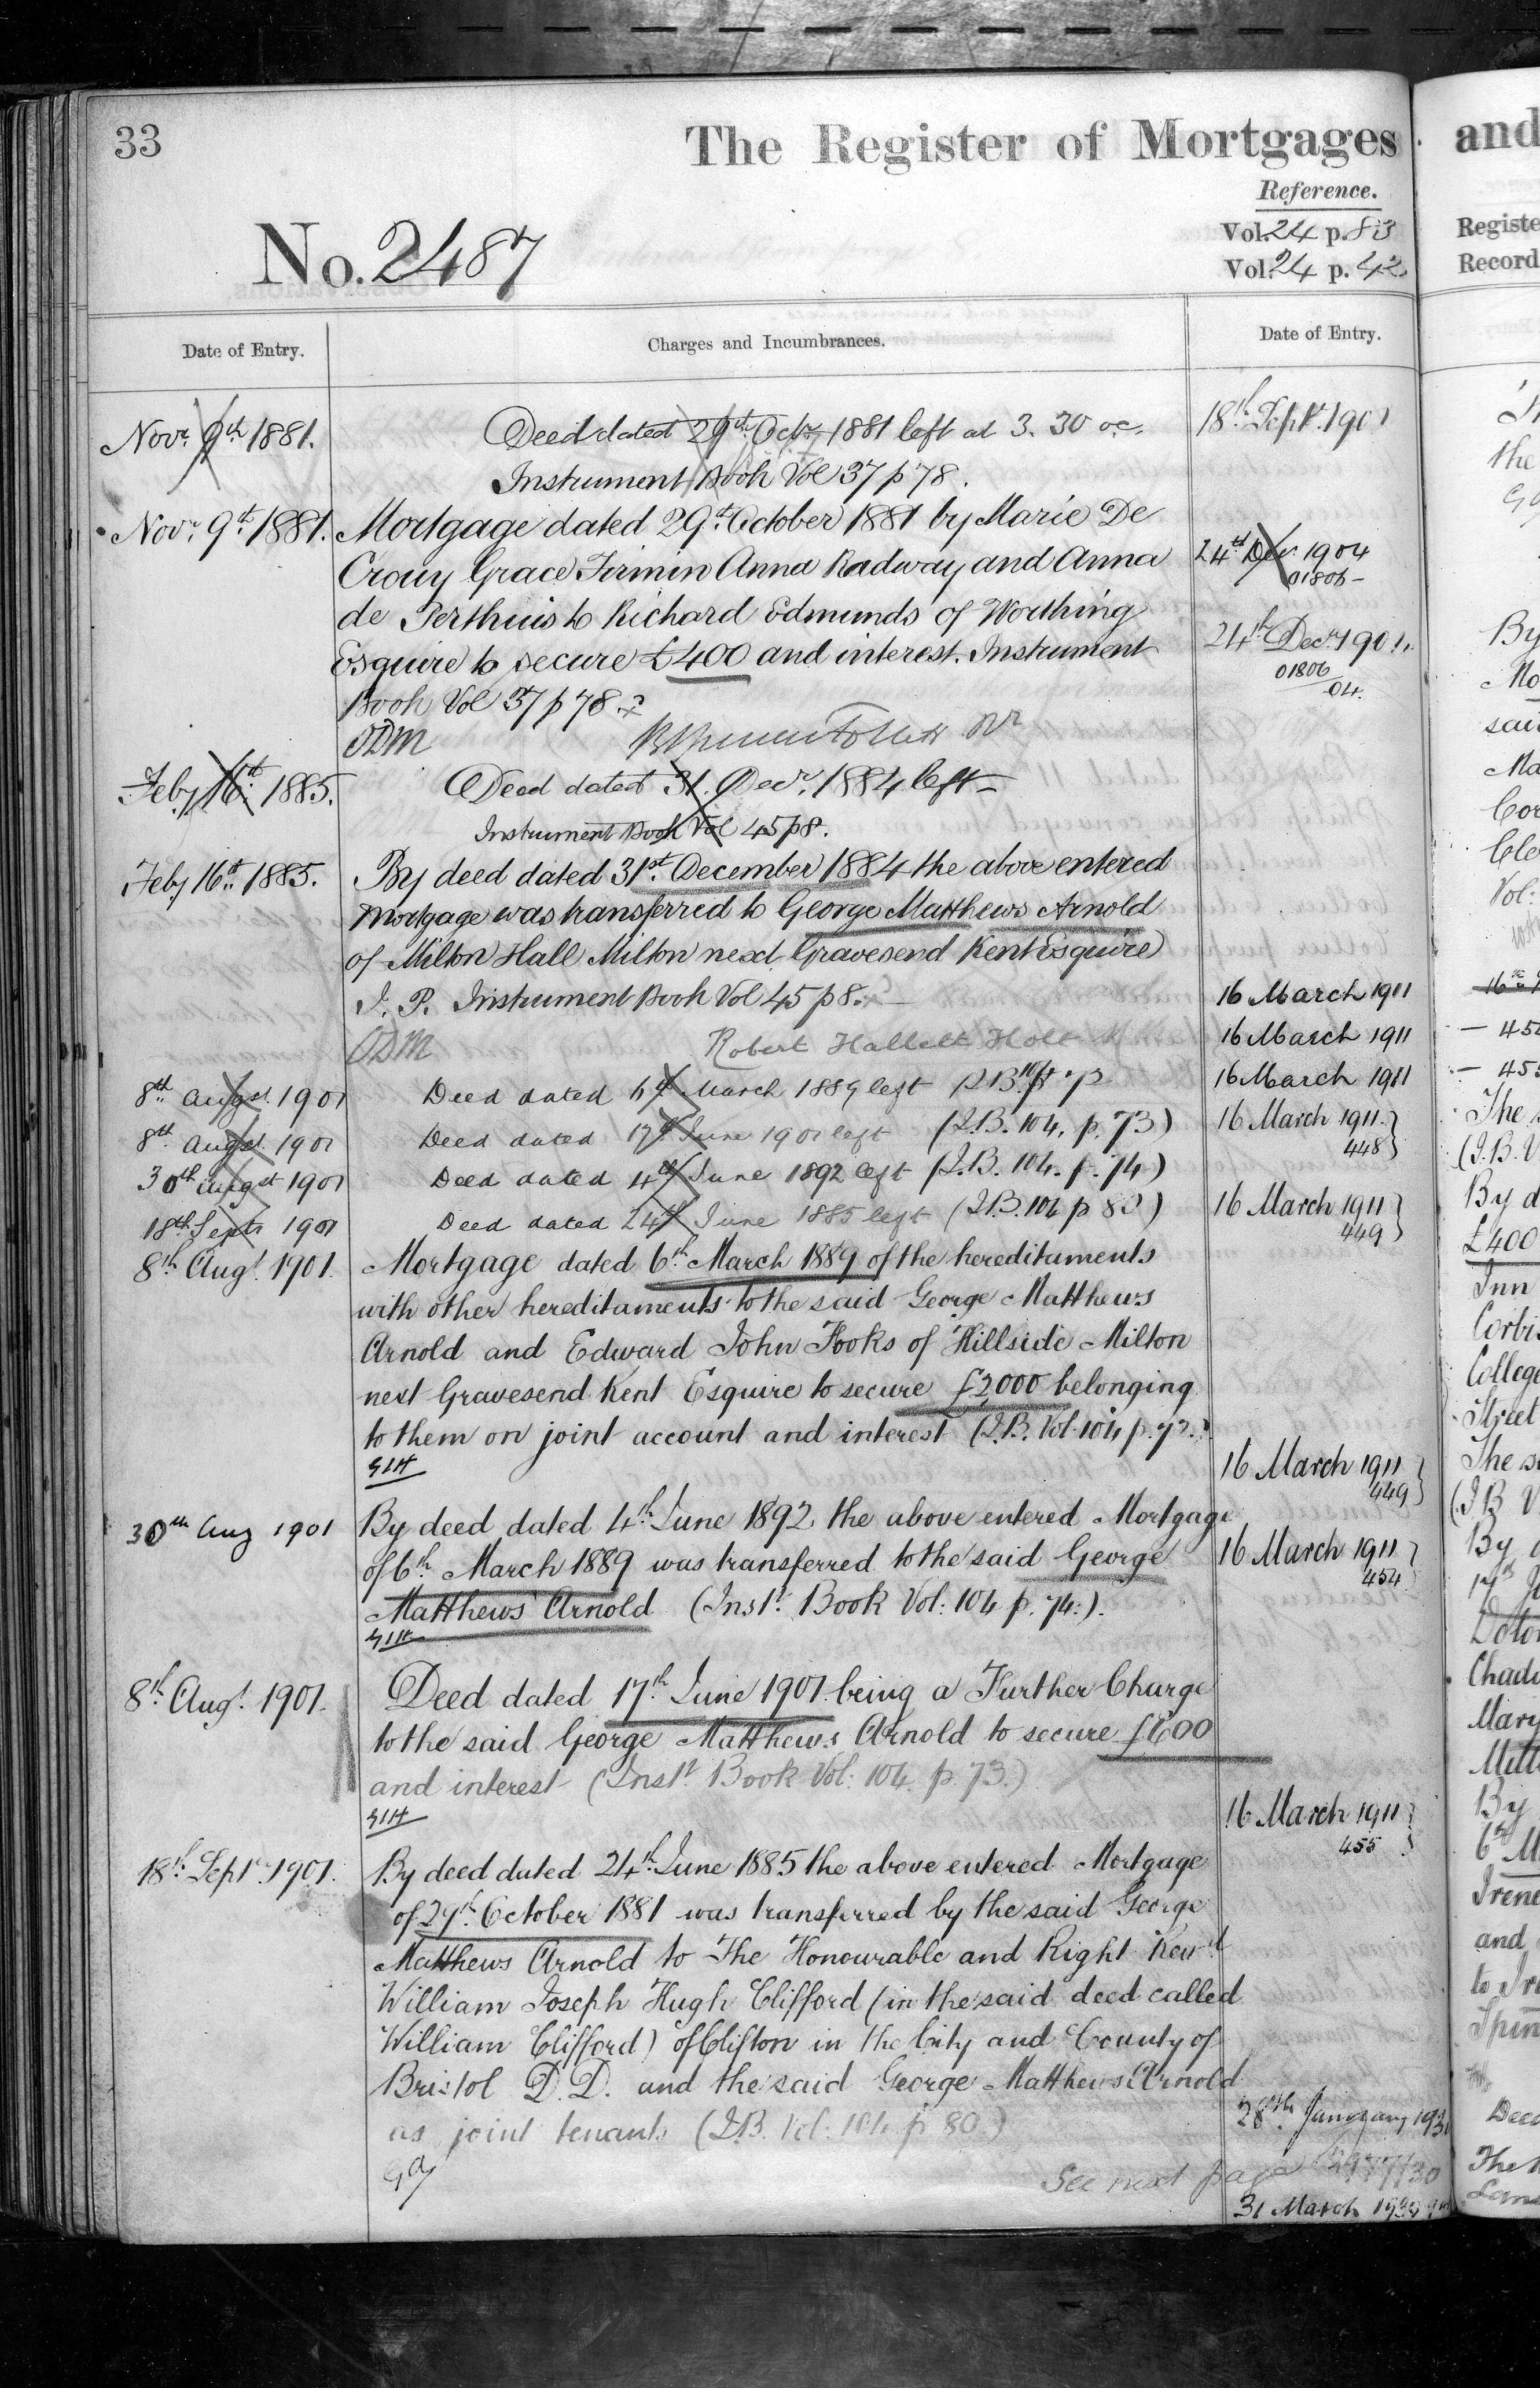 33
The Register of Mortgages
and
Reference.
No. 2487
Vol. 24 p. 83
Vol. 24 p. 42
Registe
Record
Date of Entry.
Charges and Incumbrances.
Date of Entry.
Novr. 9th 1881.
Deed dated 29th Octr. 1881 left at 3. 30 oc.
Instrument Book Vol 37 p 78.
Novr. 9th 1881.
Mortgage dated 29th October 1881 by Marie De
Crouy Grace Firmin Anna Radway and Anna
de Perthuis to Richard Edmunds of Worthing
Esquire to secure £400 and interest. Instrument
Book Vol 37 p 78.
ODM
Feby 16th 1885.
Deed dated 31. Decr. 1884 left
Instrument Book Vol 45 p 8.
Feby 16th 1885.
By deed dated 31st December 1884 the above entered
Mortgage was transferred to George Matthews Arnold
of Milton Hall Milton next Gravesend Kent Esquire
J. P. Instrument Book Vol 45 p 8.
ODM Robert Hallett Holt
8th Augst 1901
Deed dated 6th March 1889 left
8th Augst 1901
Deed dated 17th June 1901 left (I.B. 104. p. 73)
30th Augst 1901
Deed dated 4th June 1892 left (I.B. 104. p. 74)
18th Septr 1901
Deed dated 24th June 1885 left (I.B. 104 p 80)
8th Augt. 1901.
Mortgage dated 6th March 1889 of the hereditaments
with other hereditaments to the said George Matthews
Arnold and Edward John Fooks of Hillside Milton
next Gravesend Kent Esquire to secure £2000 belonging
to them on joint account and interest (I.B. Vol. 104 p. 72.)
GLH
30th Aug 1901
By deed dated 4th June 1892 the above entered Mortgage
of 6th March 1889 was transferred to the said George
Matthews Arnold (Instt. Book Vol: 104 p. 74.).
GLH
8th Augt. 1901.
Deed dated 17th June 1901 being a Further Charge
to the said George Matthews Arnold to secure £600
and interest (Instt. Book Vol: 104 p. 73.)
GLH
18th Septr. 1901.
By deed dated 24th June 1885 the above entered Mortgage
of 29th October 1881 was transferred by the said George
Matthews Arnold to The Honourable and Right Revd
William Joseph Hugh Clifford (in the said deed called
William Clifford) of Clifton in the City and County of
Bristol D.D. and the said George Matthews Arnold
as joint tenants (I.B. Vol: 104 p 80.)
See next page
18th Septr. 1901
24th Decr. 1904
01806
24th Decr. 1904.
01806
04.
16 March 1911
16 March 1911
16 March 1911
16 March 1911
448
16 March 1911
449
16 March 1911
449
16 March 1911
454
16 March 1911
455
28th January 193
31 March